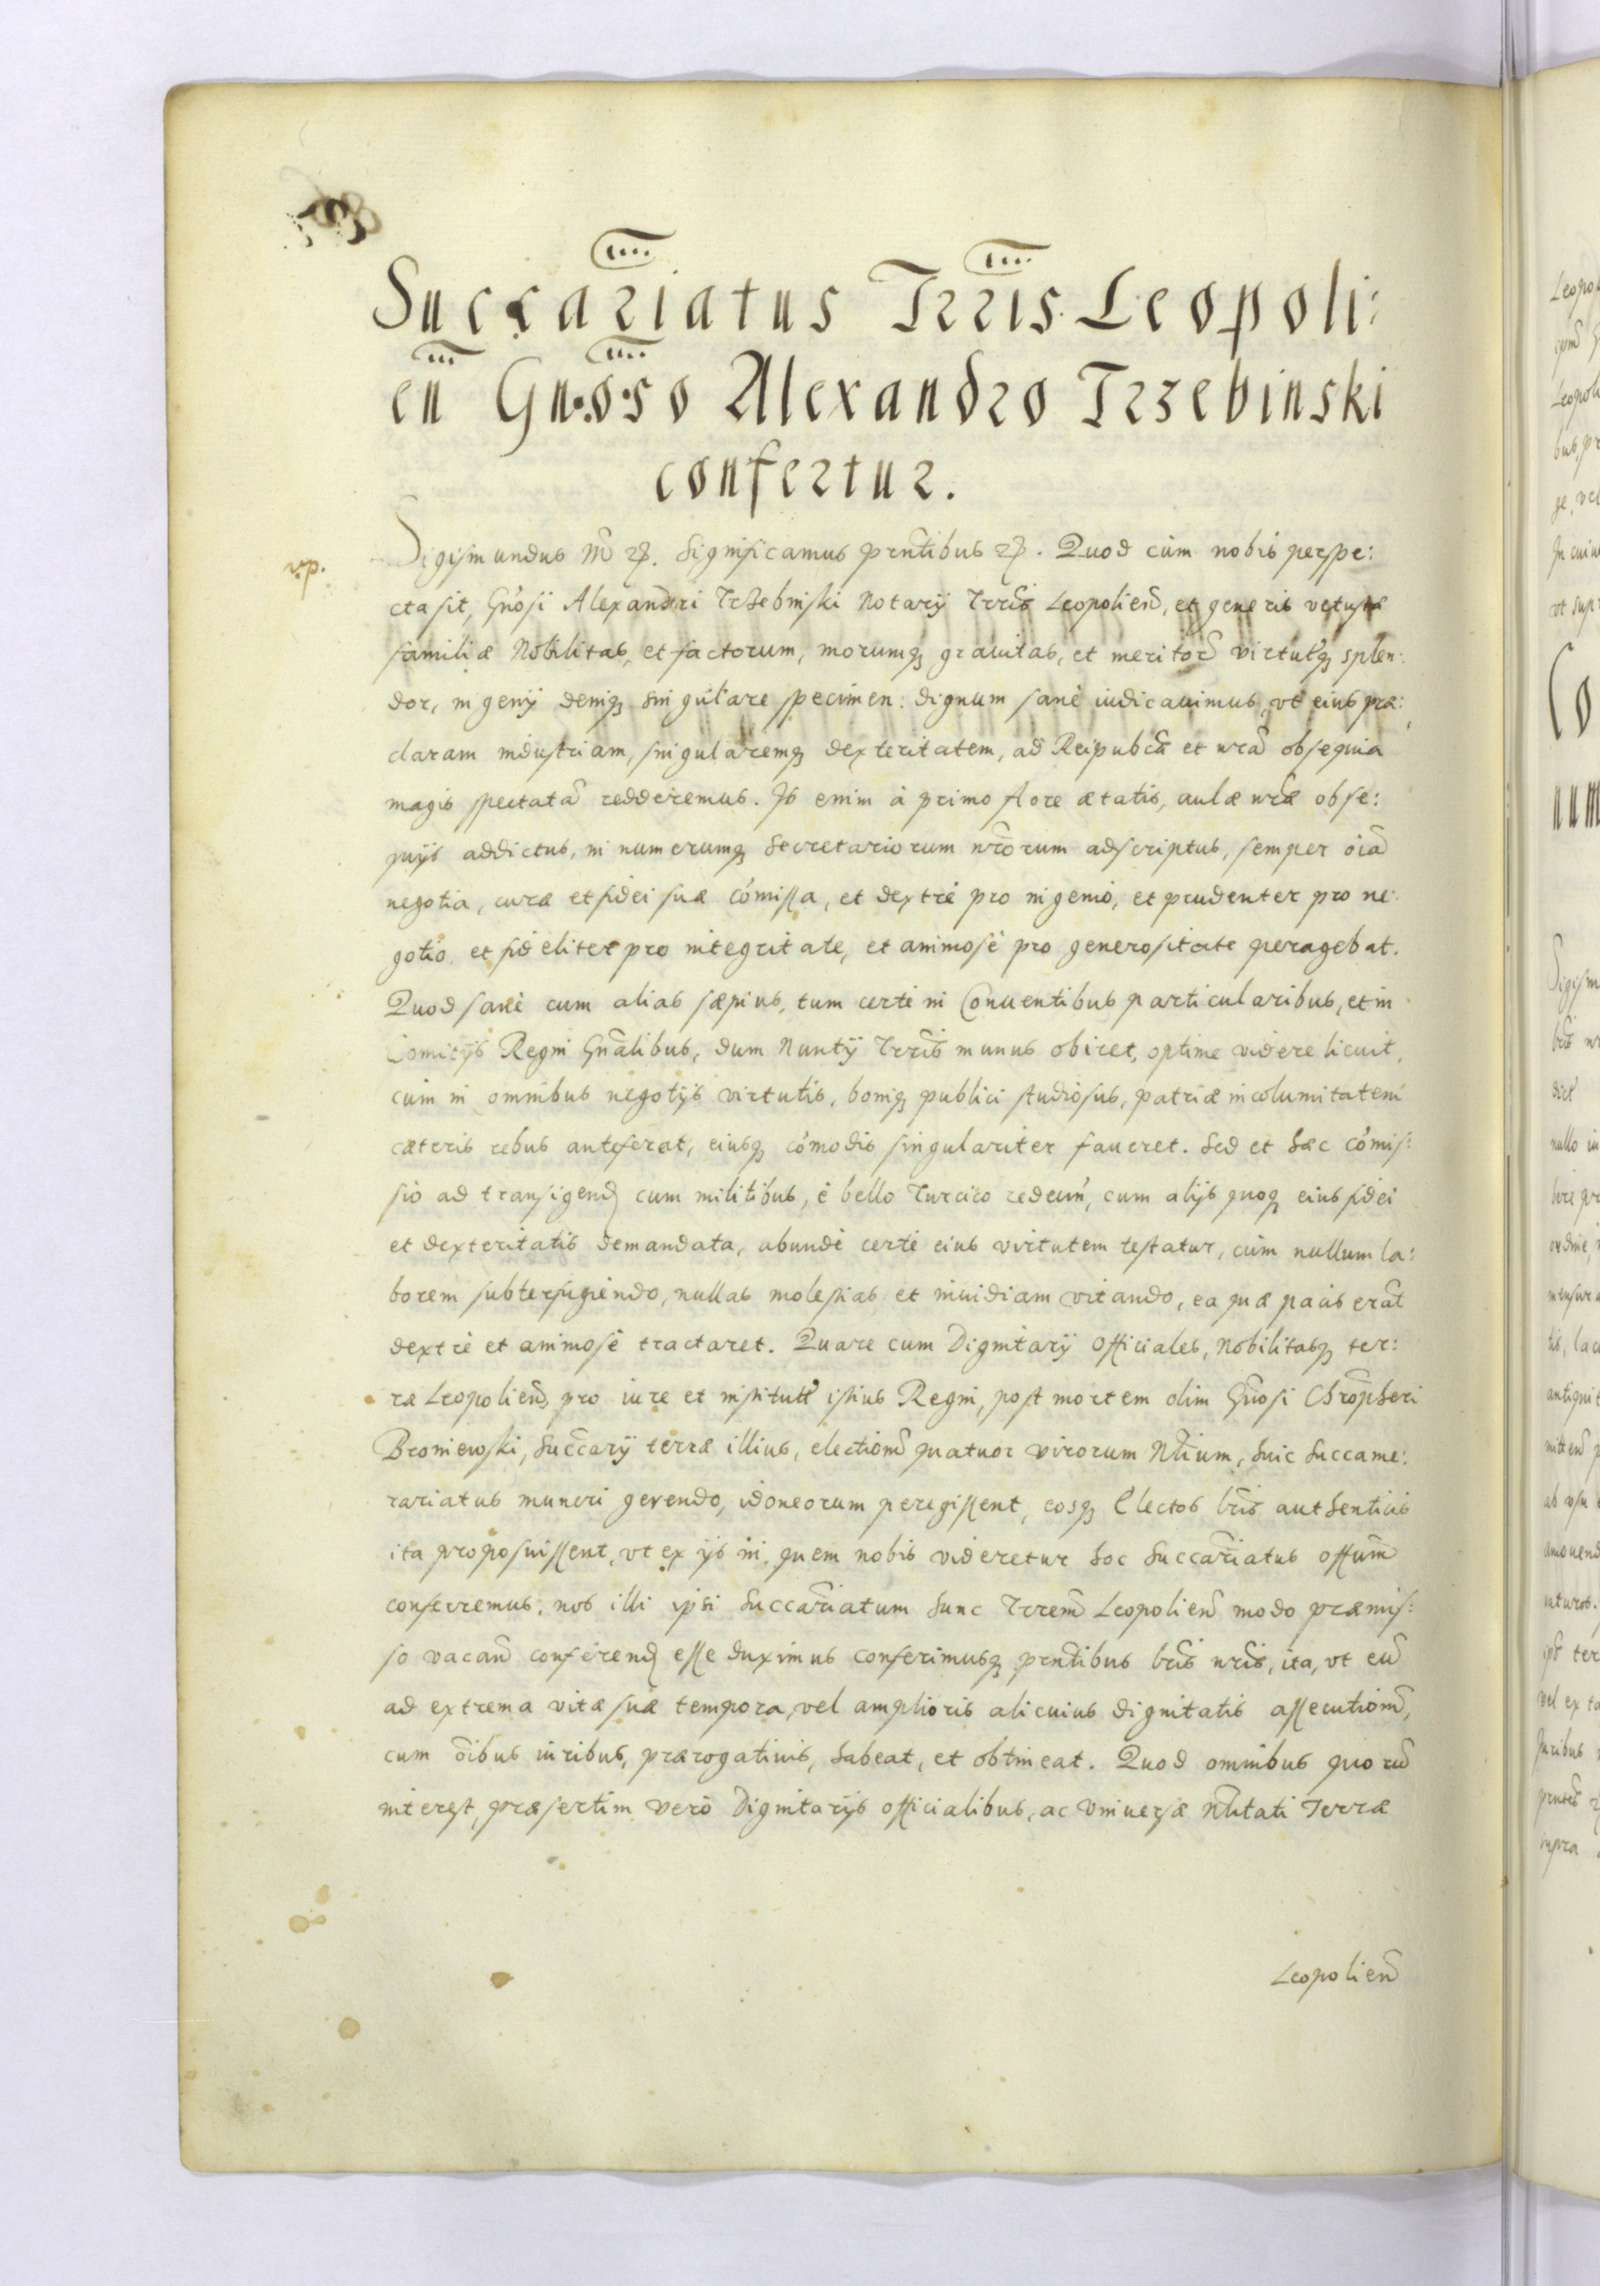 Succariatus Trris Leopoli:
en Gnoso Alexandro Trzebinski
confertur.
v.p.
Sigismundus &c. Significamus prntibus &c. Quod cùm nobis perspe:
cta sit, Gnosi Alexandri Trzebinski Notarÿ Trris Leopolien, et generis vetustæ
familiæ Nobilitas, et factorum, morumq grauitas, et meritor virtutq splen:
dor, ingenÿ deniq singulare specimen: dignum sanè iudicauimus, vt eius præ:
claram industriam, singularemq dexteritatem, ad Reipubca et nra obsequia
magis spectata redderemus. Is enim à primo flore ætatis, aulæ nræ obse:
quÿs addictus, in numerumq Secretariorum nrorum adscriptus, semper oia
negotia, curæ et fidei suæ comissa, et dextrè pro ingenio, et prudenter pro ne:
gotio et fideliter pro integritate, et animosè pro generositate peragebat.
Quod sanè cum alias sæpius, tum certè in Conuentibus particularibus, et in
Comitÿs Regni Gnalibus, dum Nuntÿ Trris munus obiret, optime videre licuit,
cùm in omnibus negotÿs virtutis, boniq publici studiosus, patriæ incolumitatem
cæteris rebus anteferat, eiusq comodis singulariter faueret. Sed et hæc comis:
sio ad transigend cum militibus, è bello Turcico redeun, cum alÿs quoq eius fidei
et dexteritatis demandata, abundè certè eius virtutem testatur, cùm nullum la:
borem subterfugiendo, nullas molestias et inuidiam vitando, ea quæ pacis erat
dextrè et animosè tractaret. Quare cum Dignitarÿ Officiales, Nobilitasq ter:
ræ Leopolien, pro iure et institutt istius Regni, post mortem olim Gnosi Chropheri
Broniewski, Succarÿ terræ illius, electiom quatuor virorum Nlium, huic Succame:
rariatus muneri gerendo, idoneorum peregissent, eosq Electos lris authenticis
ita proposuissent, vt ex ÿs ni, quem nobis videretur hoc Succariatus offum
conferremus, nos illi ipsi Succariatum hunc Trrem Leopolien modo præmis:
so vacan conferend esse duximus conferimusq prntibus lris nris, ita, vt eu
ad extrema vitæ suæ tempora, vel amplioris alicuius dignitatis assecutiom,
cum oibus iuribus, prærogatiuis, habeat, et obtineat. Quod omnibus quoru
interest, præsertim verò Dignitarÿs officialibus, ac vniuersæ Nlitati Terræ
Leopolien